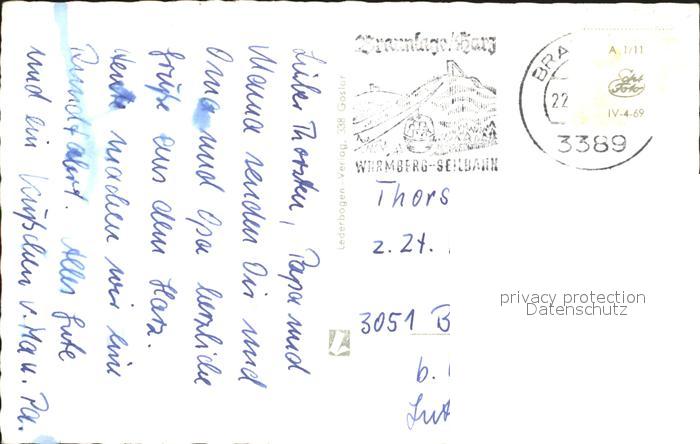 Lieber Thorsten, Papa und
Mama senden Dir und
Oma und Opa herzliche
Grüße aus dem Harz.
Heute machen wir eine
Rundfahrt. Alles Gute
und ein Küßchen v. Ma u. Pa.
Lederbogen-Verlag, 338 Goslar
Braunlage/Harz
WURMBERG-SEILBAHN
BRA
22
3389
A 1/11
Echt
Foto
IV-4-69
Thors
z. Zt.
3051 B
b.
privacy protection
Datenschutz